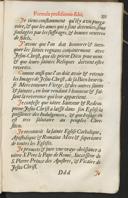 Formula professionis fidei.
Je tiens constamment qu'il y a un purga-
toire, & que les ames qui y sont detenues, sont
soulagées par les suffrages, & bonnes œuvres
de fideles.
que l'on doit honorer &
les saints regnans conjointement avec
Jesus Christ, qu'ils prient Dieu pour nous
que leurs saintes Reliques doivent estre
Comme aussi qu'on doit avoir & retenir
les Images de Jesus Christ, de sa bienheureu-
se Mere toujours Vierge, & des autres saints
& saintes, en leur rendant l'honneur & la
veneration qui leur appartient.
Je confesse que notre Sauveur & Redem-
pteur Jesus Christ a laissé dans son Eglise la
puissance des Indulgences, & que l'usage en
est salutaire au peuple Chre-
tien.
Je reconnois la sainte Eglise Catholique,
Apostolique & Romaine Mere & maitresse
de toutes les Eglises.
Je promets & jure une vraye obeissance à
notre S. Pere le Pape de Rome, Successeur de
S. Pierre Prince des Apostres, & Vicaire de
Jesus Christ.
Ddd